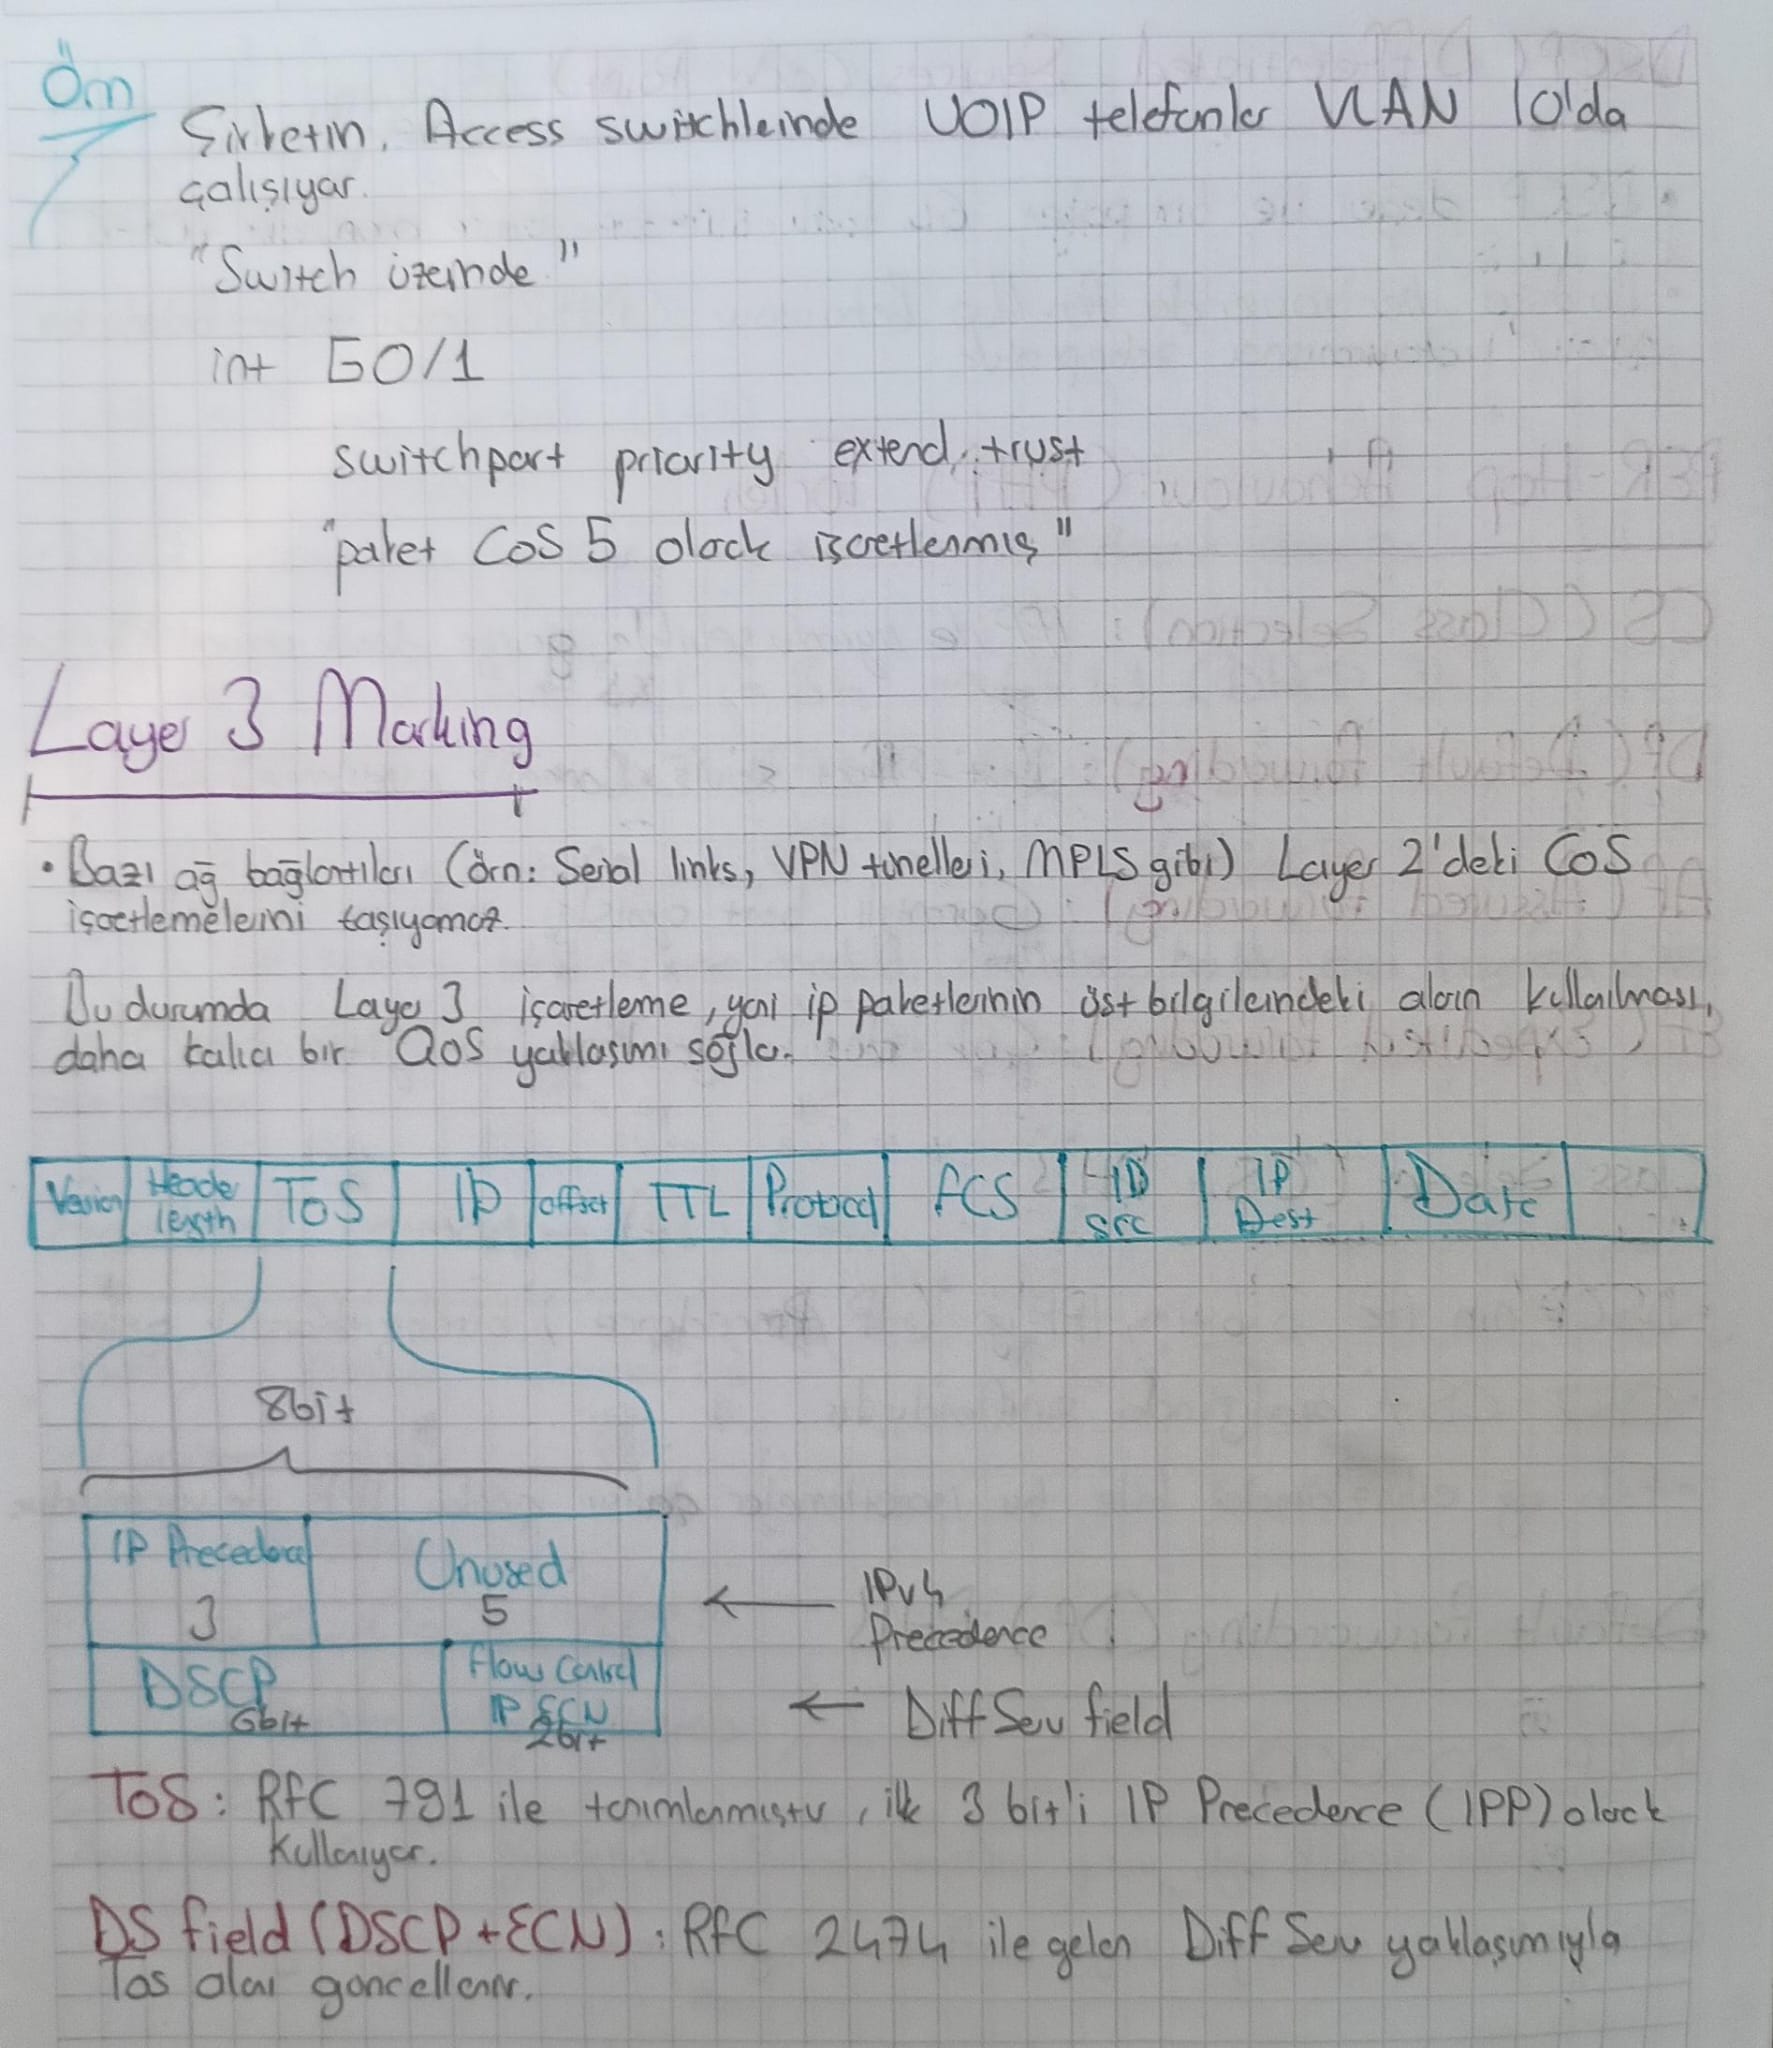 Örn
Şirketin, Access switchleinde VOIP telefonlar VLAN 10'da
çalışıyor.
"Switch üzeinde"
int G0/1
switchport priority extend trust
"paket CoS 5 olarak işaretlenmiş"
Layer 3 Marking
• Bazı ağ bağlantıları (Örn: Serial links, VPN tünelleri, MPLS gibi) Layer 2'deki CoS
işaretlemeleini taşıyamaz.
Bu durumda Layer 3 işaretleme, yani ip paketlerinin üst bilgileindeki alanın kullanılması,
daha kalıcı bir QoS yaklaşımı sağlar.
Version Header length ToS ID offset TTL Protocol FCS IP src IP Dest Data
8bit
IP Precedence 3 Unused 5 ← IPv4 Precedence
DSCP 6bit Flow Control IP ECN 2bit ← DiffServ field
ToS: RFC 791 ile tanımlanmıştır, ilk 3 bit'i IP Precedence (IPP) olarak
kullanıyor.
DS field (DSCP + ECN): RFC 2474 ile gelen Diff Serv yaklaşımıyla
Tos alanı güncellenir.